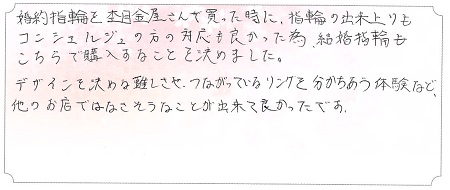 婚約指輪を杢目金屋さんで買った時に、指輪の出来上りも
コンシェルジュの方の対応も良かった為、結婚指輪も
こちらで購入することを決めました。
デザインを決める難しさや、つながっているリングを分かちあう体験など、
他のお店ではなさそうなことが出来て良かったです。